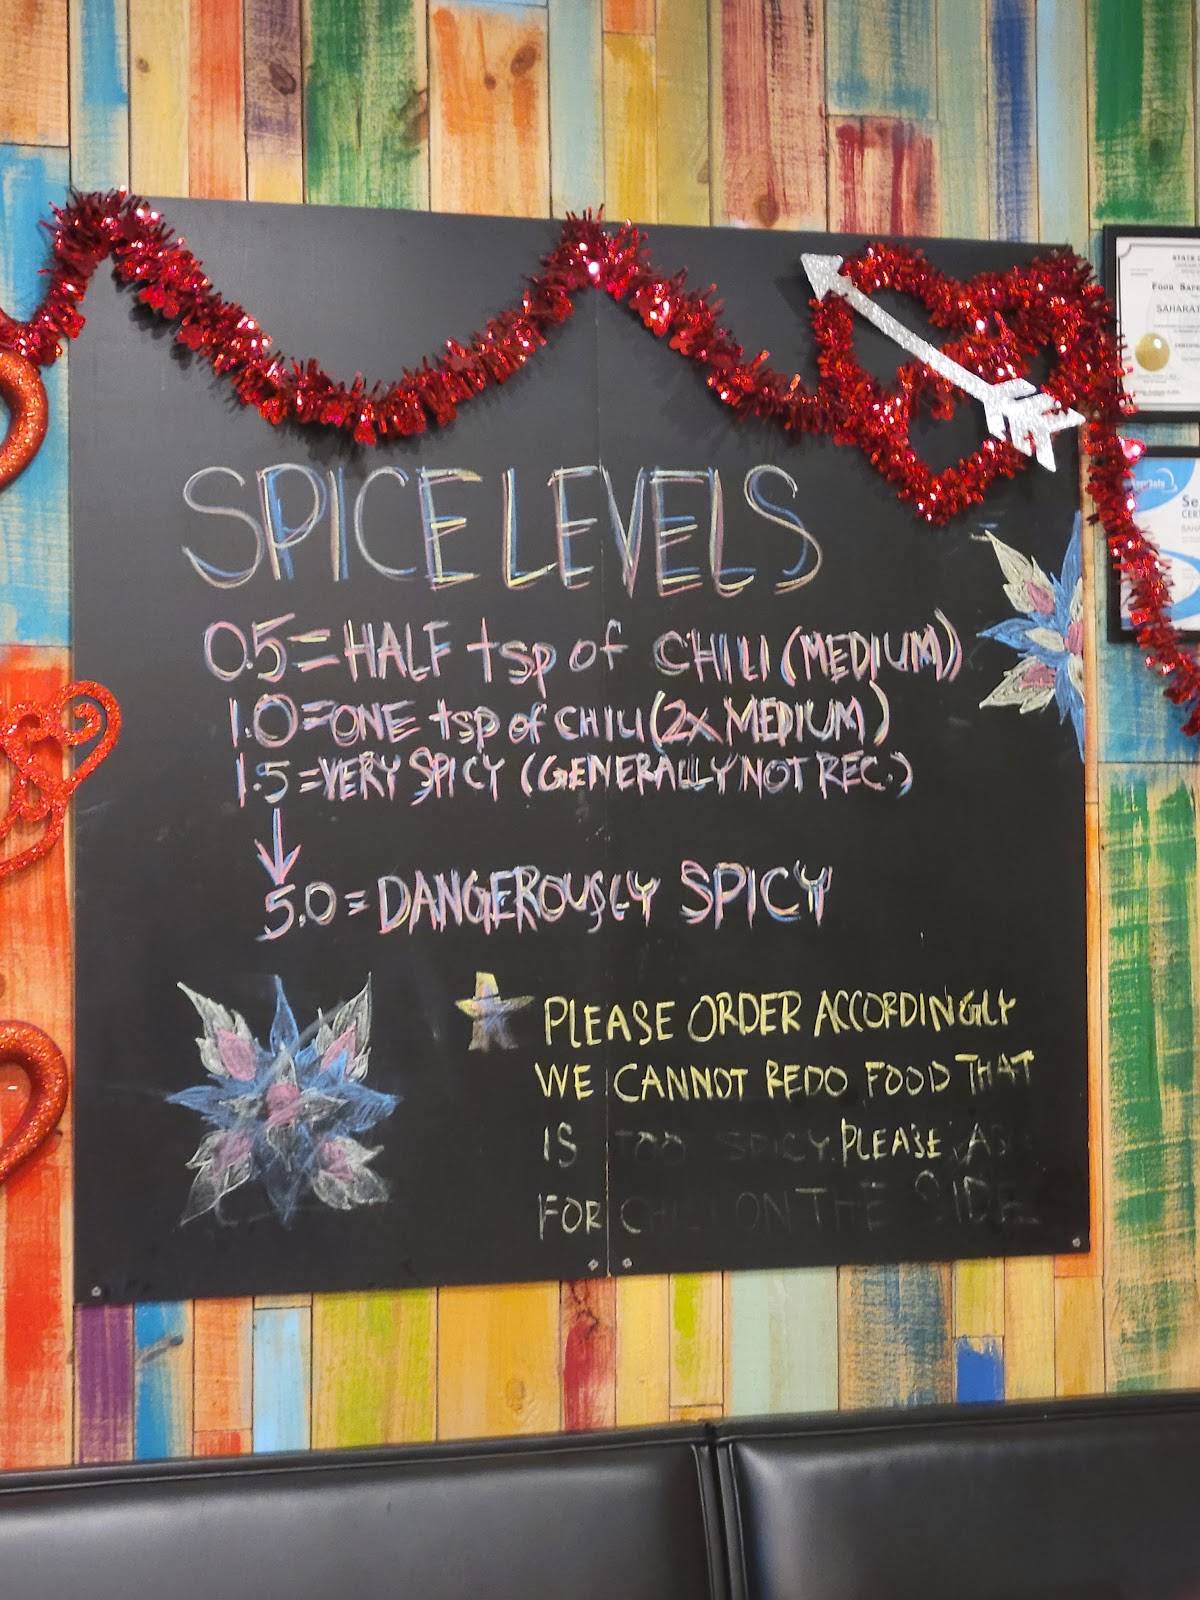 SPICE LEVELS
0.5 = HALF tsp of CHILI (MEDIUM)
1.0 = ONE tsp of CHILI (2x MEDIUM)
1.5 = VERY SPICY (GENERALLY NOT REC.)
5.0 = DANGEROUSLY SPICY
PLEASE ORDER ACCORDINGLY
WE CANNOT REDO FOOD THAT
IS TOO SPICY. PLEASE ASK
FOR CHILI ON THE SIDE